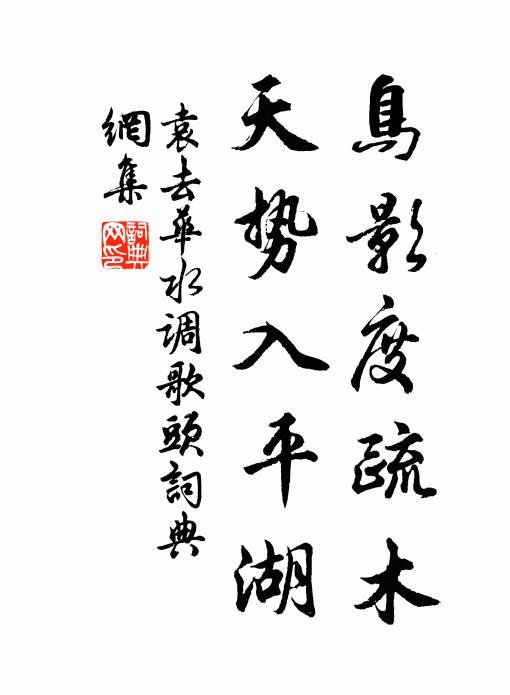 鳥影度疏木
天势入平湖
袁去華水调歌頭詞典
網集
詞典
网印